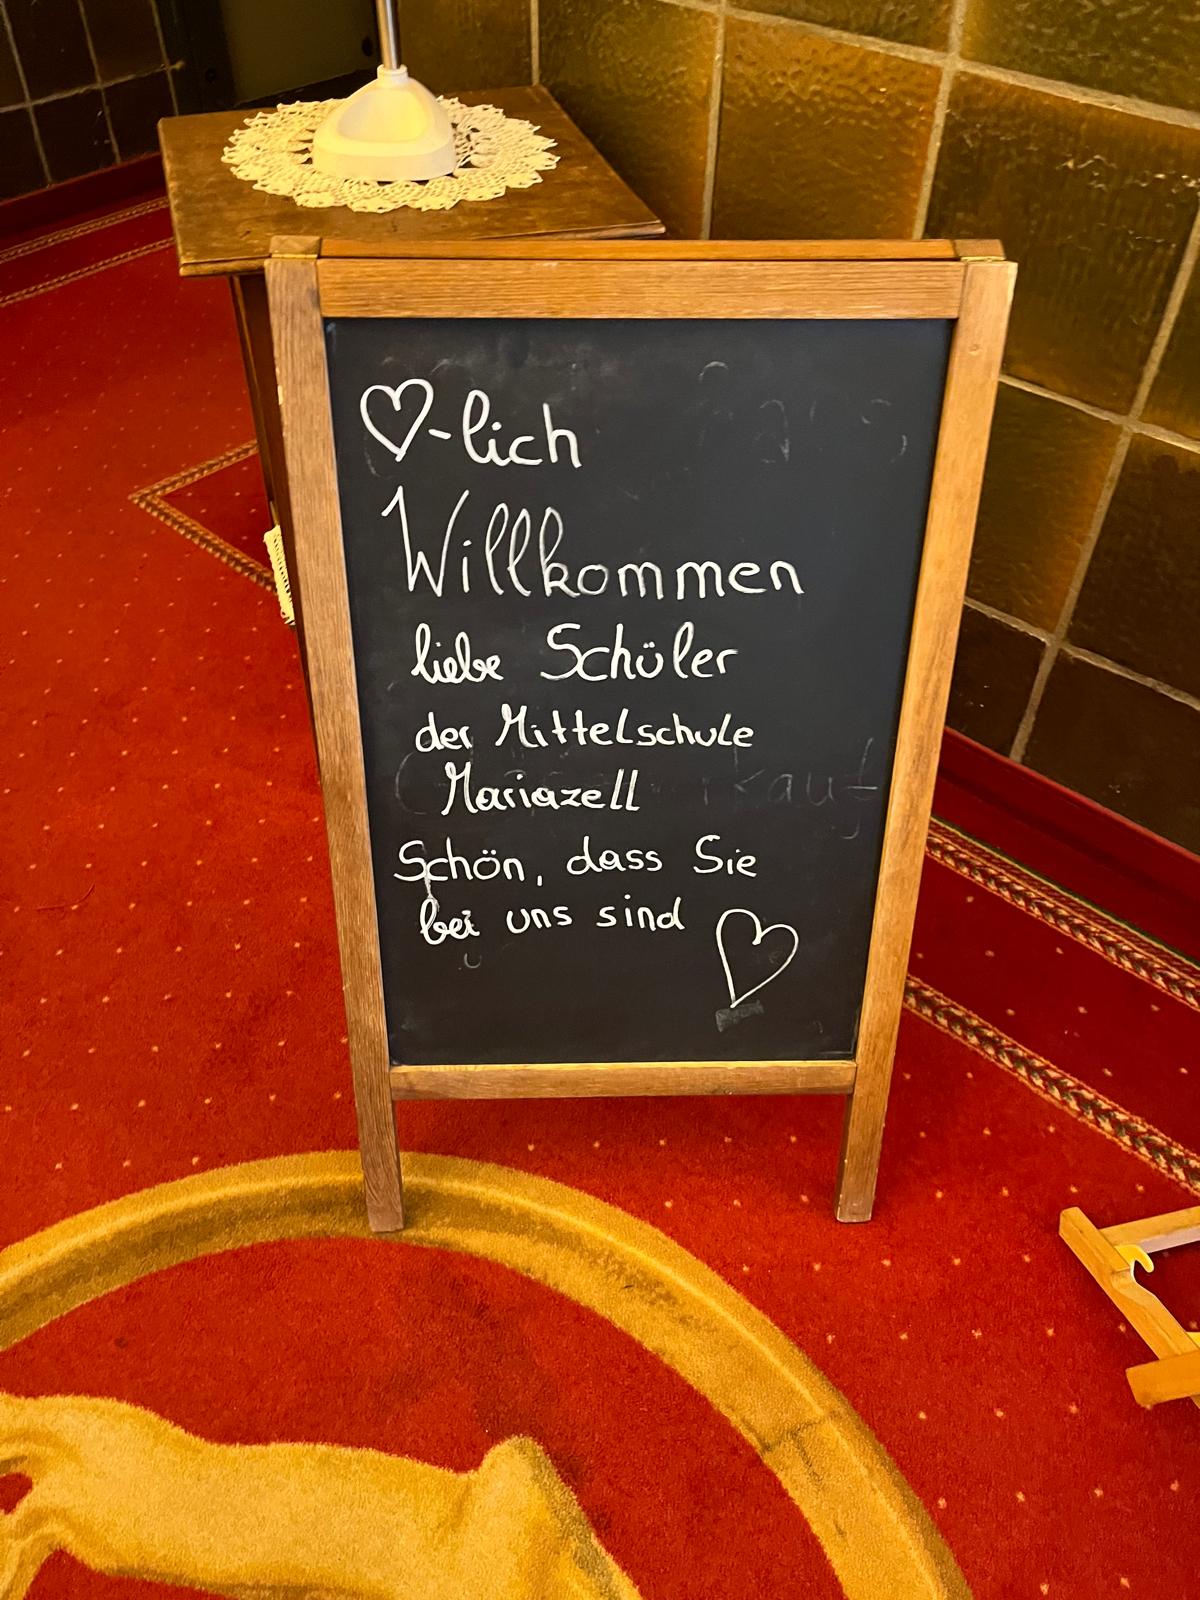 ♡-lich
Willkommen
liebe Schüler
der Mittelschule
Mariazell
Schön, dass Sie
bei uns sind ♡